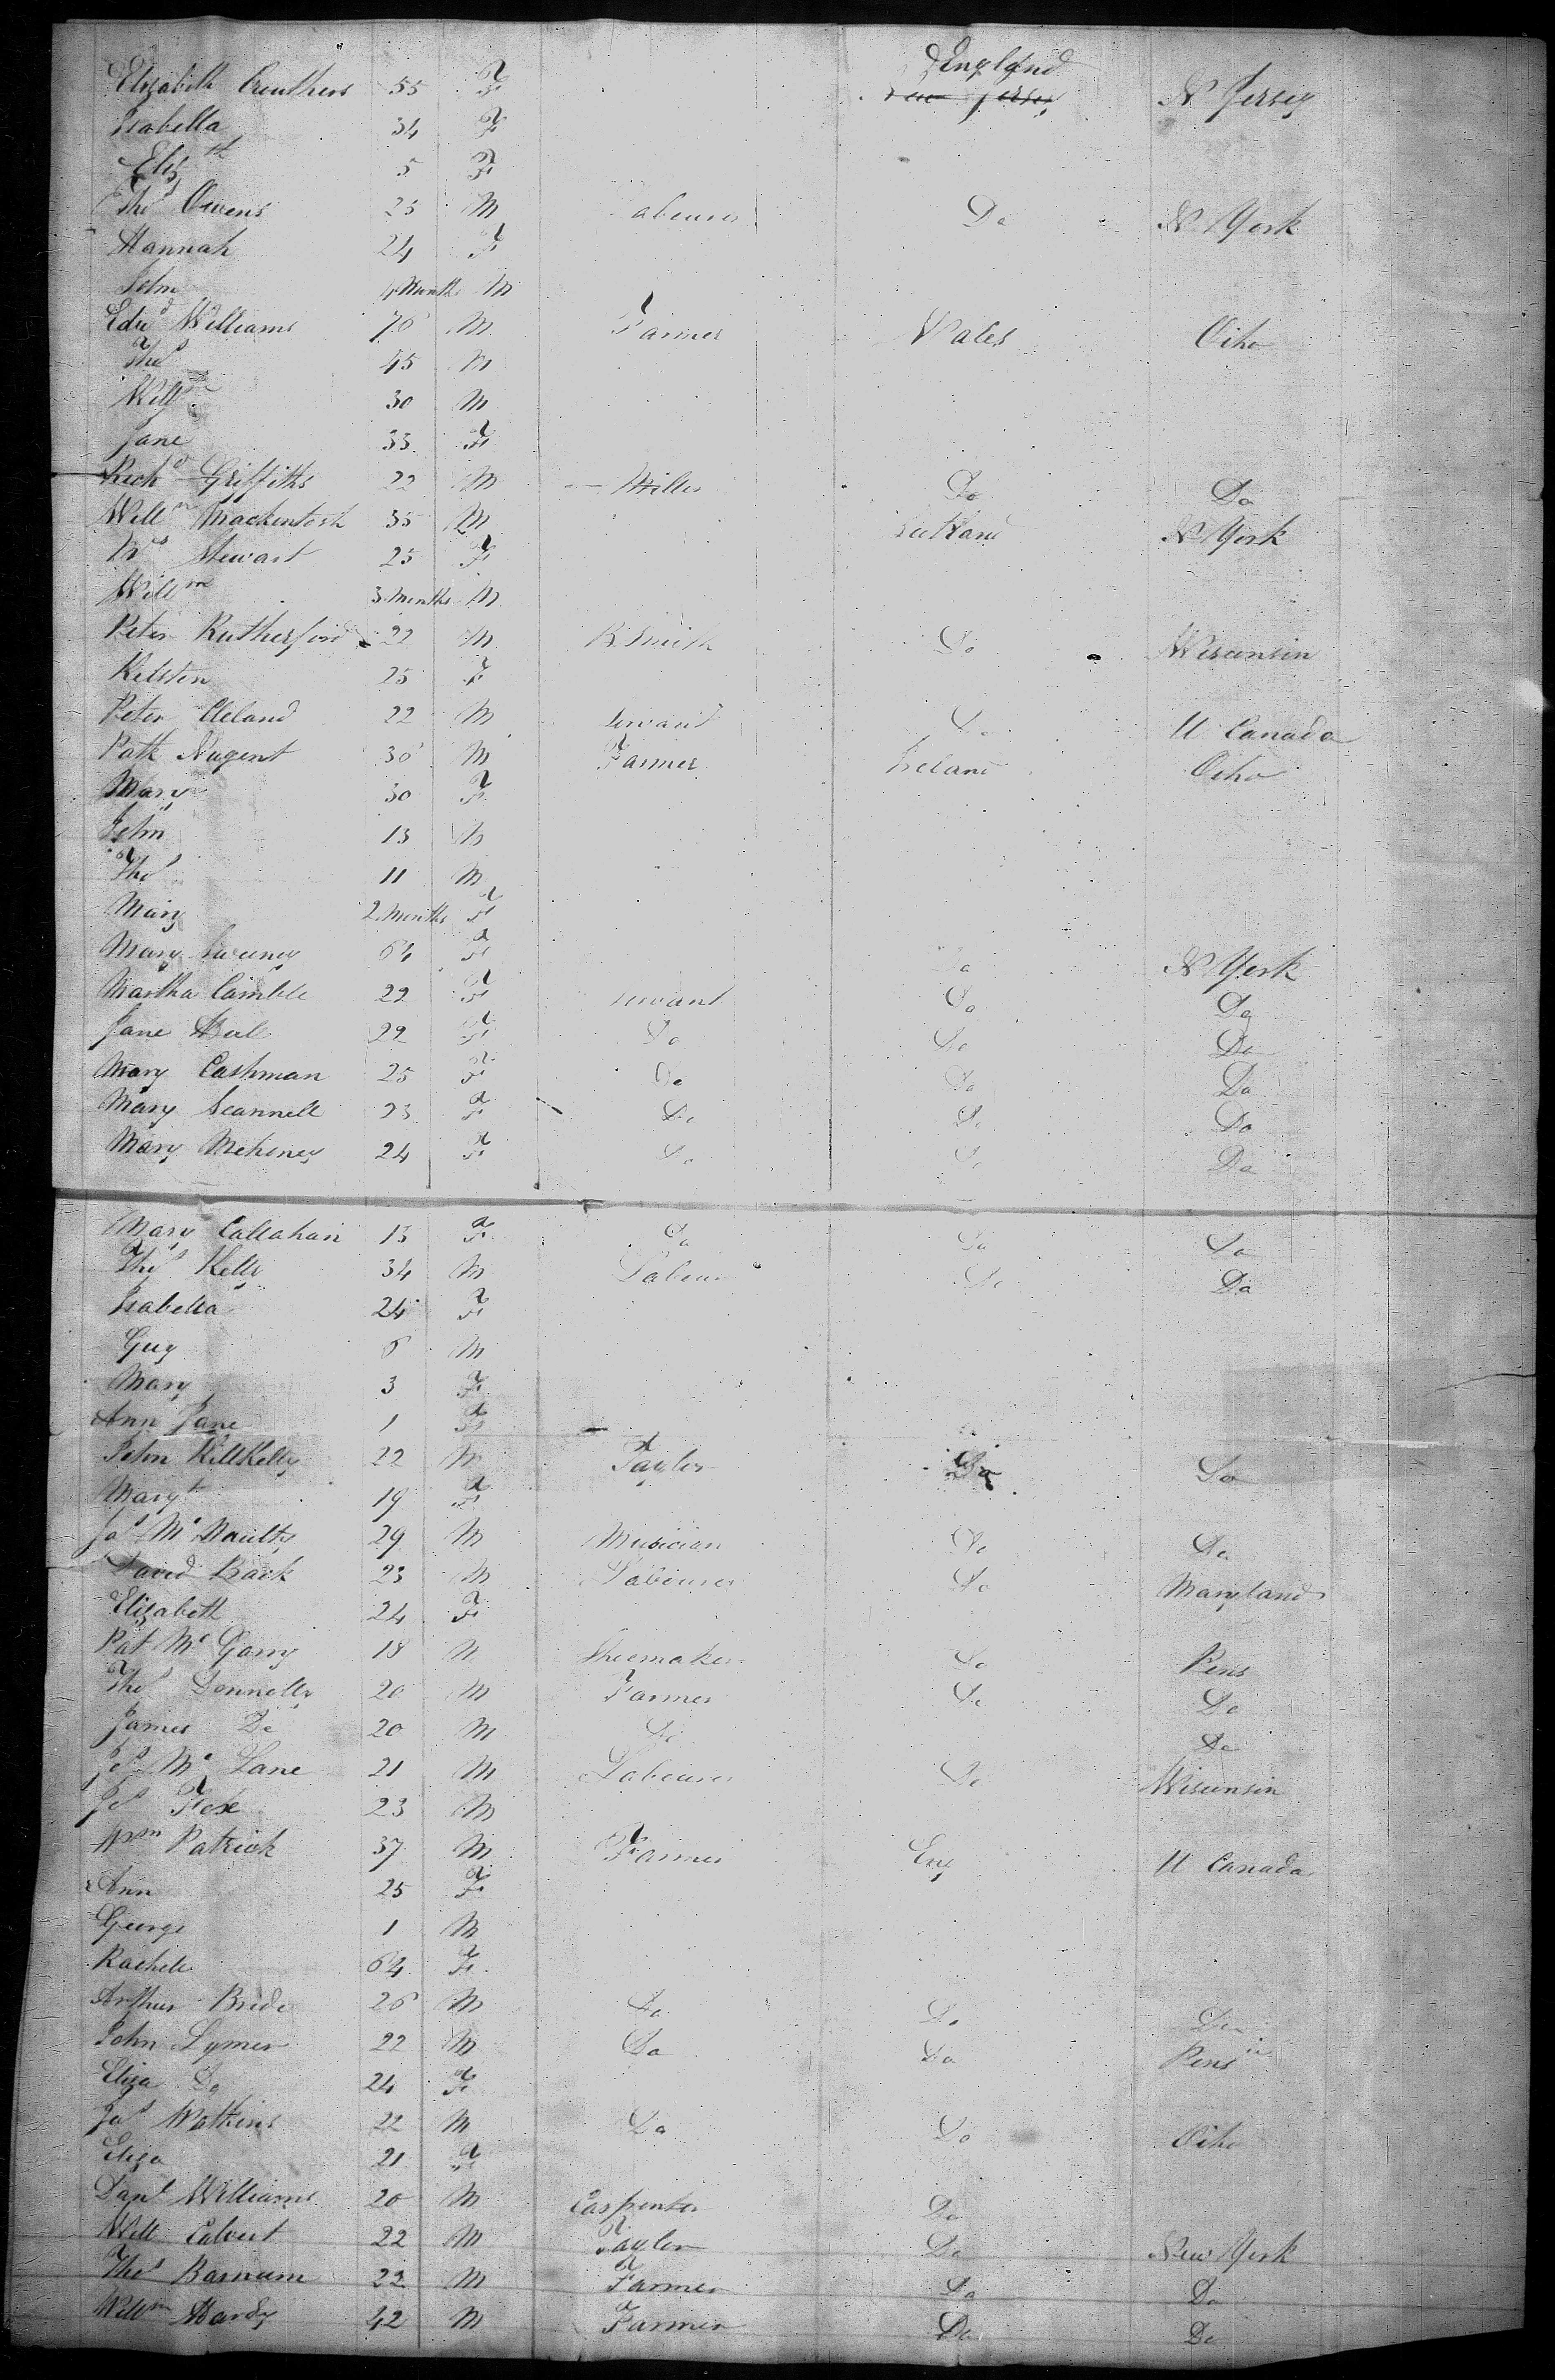 England
Elizabeth Cruthers 55 F New Jersey N Jersey
Isabella 34 F
Eliz th 5 F
Thos Owens 25 M Labourer Do N York
Hannah 24 F
John 4 Months M
Edwd Williams 76 M Farmer Wales Oiho
Thos 45 M
Willm 30 M
Jane 33 F
Richd Griffiths 22 M Miller Do Do
Willm Mackentosh 35 M Scotland N York
Mrs Stewart 25 F
Willm 3 Months M
Peter Rutherford 22 M B. Smith Do Wisconsin
Kirsten 25 F
Peter Cleland 22 M Servant Do U Canada
Patk Nugent 30 M Farmer Ireland Oiho
Mary 30 F
John 13 M
Thos 11 M
Mary 2 Months F
Mary Sweeney 64 F Do N York
Martha Camble 22 F Servant Do Do
Jane 22 F Do Do Do
Mary Cashman 25 F Do Do Do
Mary Scannell 23 F Do Do Do
Mary Mehiney 24 F Do Do Do
Mary Callahan 13 F Do Do Do
Thos Kelly 34 M Labour Do Do
Isabella 24 F
Guy 6 M
Mary 3 F
Ann Jane 1 F
John Killkelly 22 M Taylor Do Do
Margt 19 F
Jas Mc Naulty 29 M Musician Do Do
David Back 23 M Labourer Do Maryland
Elizabeth 24 F
Pat Mc Garry 18 M Shoemaker Do Pens
Thos Donnelly 20 M Farmer Do Do
James Do 20 M Do Do
Jos Mc Lane 21 M Labourer Do Wisconsin
Jos Fox 23 M
Wm Patrick 37 M Farmer Eng U Canada
Ann 25 F
George 1 M
Rachele 64 F
Arthur Bride 26 M Do Do Do
John Lymer 22 M Do Do Pens
Eliza Do 24 F
Jas Watkins 22 M Do Do Oiho
Eliza 21 F
Danl Williams 20 M Carpenter Do
Will Calvert 22 M Taylor Do New York
Thos Barnum 22 M Farmer Do Do
Willm Hardy 42 M Farmer Do Do